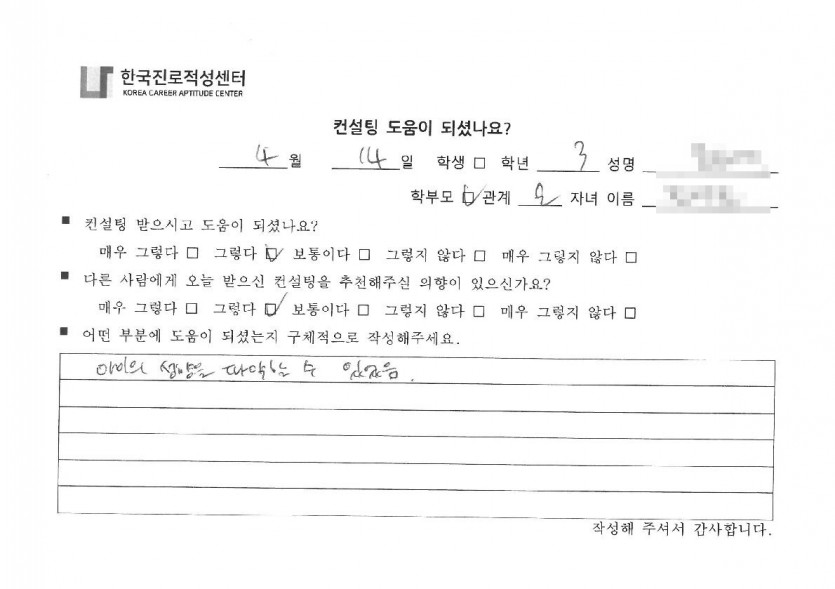 한국진로적성센터
KOREA CAREER APTITUDE CENTER
컨설팅 도움이 되셨나요?
4 월 14 일 학생 □ 학년 3 성명
학부모 ☑ 관계 모 자녀 이름
■ 컨설팅 받으시고 도움이 되셨나요?
매우 그렇다 □ 그렇다 ☑ 보통이다 □ 그렇지 않다 □ 매우 그렇지 않다 □
■ 다른 사람에게 오늘 받으신 컨설팅을 추천해주실 의향이 있으신가요?
매우 그렇다 □ 그렇다 ☑ 보통이다 □ 그렇지 않다 □ 매우 그렇지 않다 □
■ 어떤 부분에 도움이 되셨는지 구체적으로 작성해주세요.
아이의 성향을 파악할 수 있었음.
작성해 주셔서 감사합니다.